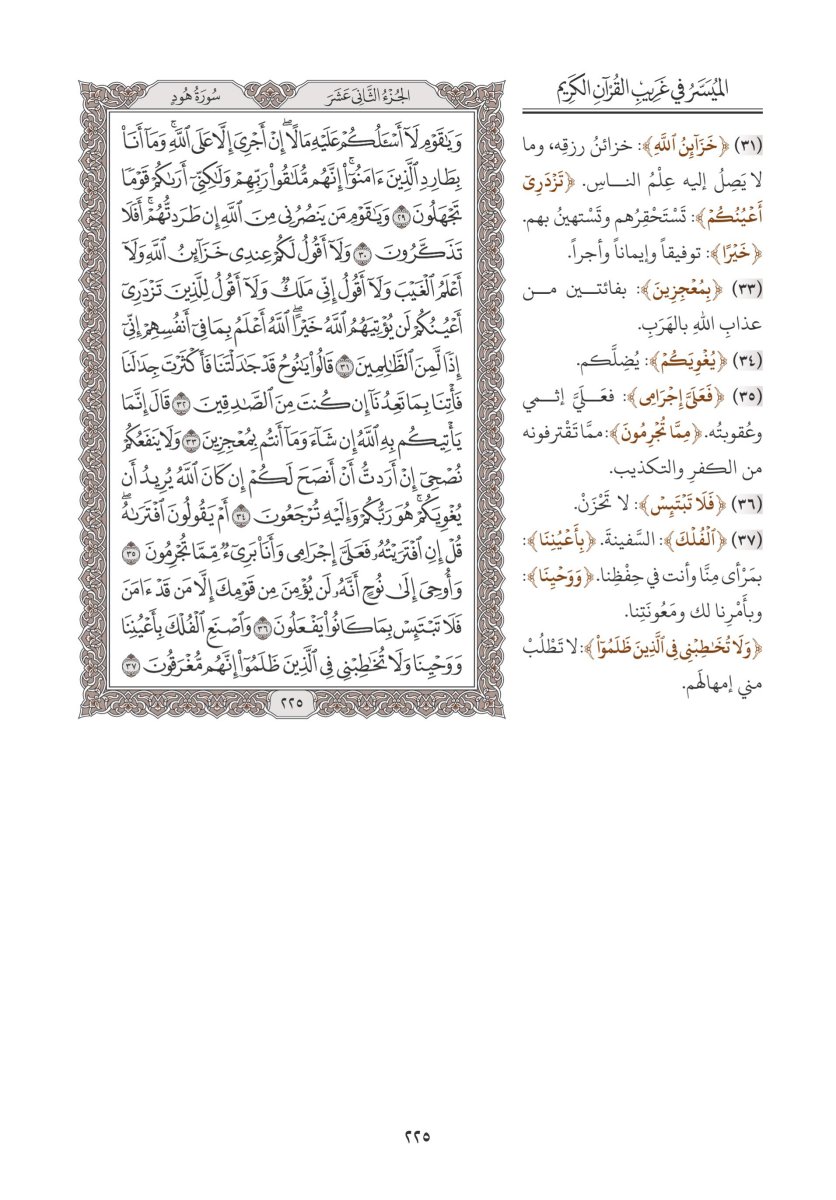 الميسر في غريب القرآن الكريم
(٣١) ﴿خَزَآئِنُ ٱللَّهِ﴾: خزائنُ رزقِه، وما
لا يَصِلُ إليه عِلْمُ النــاسِ. ﴿تَزۡدَرِيٓ
أَعۡيُنُكُمۡ﴾: تَسْتَحْقِرُهم وتَسْتهينُ بهم.
﴿خَيۡرًا﴾: توفيقاً وإيماناً وأجراً.
(٣٣) ﴿بِمُعۡجِزِينَ﴾: بفائتــين مــن
عذابِ اللهِ بالهَرَبِ.
(٣٤) ﴿يُغۡوِيَكُمۡ﴾: يُضِلَّكم.
(٣٥) ﴿فَعَلَيَّ إِجۡرَامِي﴾: فعَــلَيَّ إثــمي
وعُقوبتُه. ﴿مِّمَّا تُجۡرِمُونَ﴾: ممَّا تَقْترفونه
من الكفرِ والتكذيب.
(٣٦) ﴿فَلَا تَبۡتَئِسۡ﴾: لا تَحْزَنْ.
(٣٧) ﴿ٱلۡفُلۡكَ﴾: السَّفينةَ. ﴿بِأَعۡيُنِنَا﴾:
بمَرْأى مِنَّا وأنت في حِفْظِنا. ﴿وَوَحۡيِنَا﴾:
وبأَمْرِنا لك ومَعُونَتِنا.
﴿وَلَا تُخَٰطِبۡنِي فِي ٱلَّذِينَ ظَلَمُوٓاْ﴾: لا تَطْلُبْ
مني إمهالَهم.
الجزء الثاني عشر
سورة هود
وَيَٰقَوۡمِ لَآ أَسۡـَٔلُكُمۡ عَلَيۡهِ مَالًاۖ إِنۡ أَجۡرِيَ إِلَّا عَلَى ٱللَّهِۚ وَمَآ أَنَا۠
بِطَارِدِ ٱلَّذِينَ ءَامَنُوٓاْۚ إِنَّهُم مُّلَٰقُواْ رَبِّهِمۡ وَلَٰكِنِّيٓ أَرَىٰكُمۡ قَوۡمٗا
تَجۡهَلُونَ ٢٩ وَيَٰقَوۡمِ مَن يَنصُرُنِي مِنَ ٱللَّهِ إِن طَرَدتُّهُمۡۚ أَفَلَا
تَذَكَّرُونَ ٣٠ وَلَآ أَقُولُ لَكُمۡ عِندِي خَزَآئِنُ ٱللَّهِ وَلَآ
أَعۡلَمُ ٱلۡغَيۡبَ وَلَآ أَقُولُ إِنِّي مَلَكٞ وَلَآ أَقُولُ لِلَّذِينَ تَزۡدَرِيٓ
أَعۡيُنُكُمۡ لَن يُؤۡتِيَهُمُ ٱللَّهُ خَيۡرًاۖ ٱللَّهُ أَعۡلَمُ بِمَا فِيٓ أَنفُسِهِمۡ إِنِّيٓ
إِذٗا لَّمِنَ ٱلظَّٰلِمِينَ ٣١ قَالُواْ يَٰنُوحُ قَدۡ جَٰدَلۡتَنَا فَأَكۡثَرۡتَ جِدَٰلَنَا
فَأۡتِنَا بِمَا تَعِدُنَآ إِن كُنتَ مِنَ ٱلصَّٰدِقِينَ ٣٢ قَالَ إِنَّمَا
يَأۡتِيكُم بِهِ ٱللَّهُ إِن شَآءَ وَمَآ أَنتُم بِمُعۡجِزِينَ ٣٣ وَلَا يَنفَعُكُمۡ
نُصۡحِيٓ إِنۡ أَرَدتُّ أَنۡ أَنصَحَ لَكُمۡ إِن كَانَ ٱللَّهُ يُرِيدُ أَن
يُغۡوِيَكُمۡۚ هُوَ رَبُّكُمۡ وَإِلَيۡهِ تُرۡجَعُونَ ٣٤ أَمۡ يَقُولُونَ ٱفۡتَرَىٰهُۖ
قُلۡ إِنِ ٱفۡتَرَيۡتُهُۥ فَعَلَيَّ إِجۡرَامِي وَأَنَا۠ بَرِيٓءٞ مِّمَّا تُجۡرِمُونَ ٣٥
وَأُوحِيَ إِلَىٰ نُوحٍ أَنَّهُۥ لَن يُؤۡمِنَ مِن قَوۡمِكَ إِلَّا مَن قَدۡ ءَامَنَ
فَلَا تَبۡتَئِسۡ بِمَا كَانُواْ يَفۡعَلُونَ ٣٦ وَٱصۡنَعِ ٱلۡفُلۡكَ بِأَعۡيُنِنَا
وَوَحۡيِنَا وَلَا تُخَٰطِبۡنِي فِي ٱلَّذِينَ ظَلَمُوٓاْ إِنَّهُم مُّغۡرَقُونَ ٣٧
٢٢٥
٢٢٥